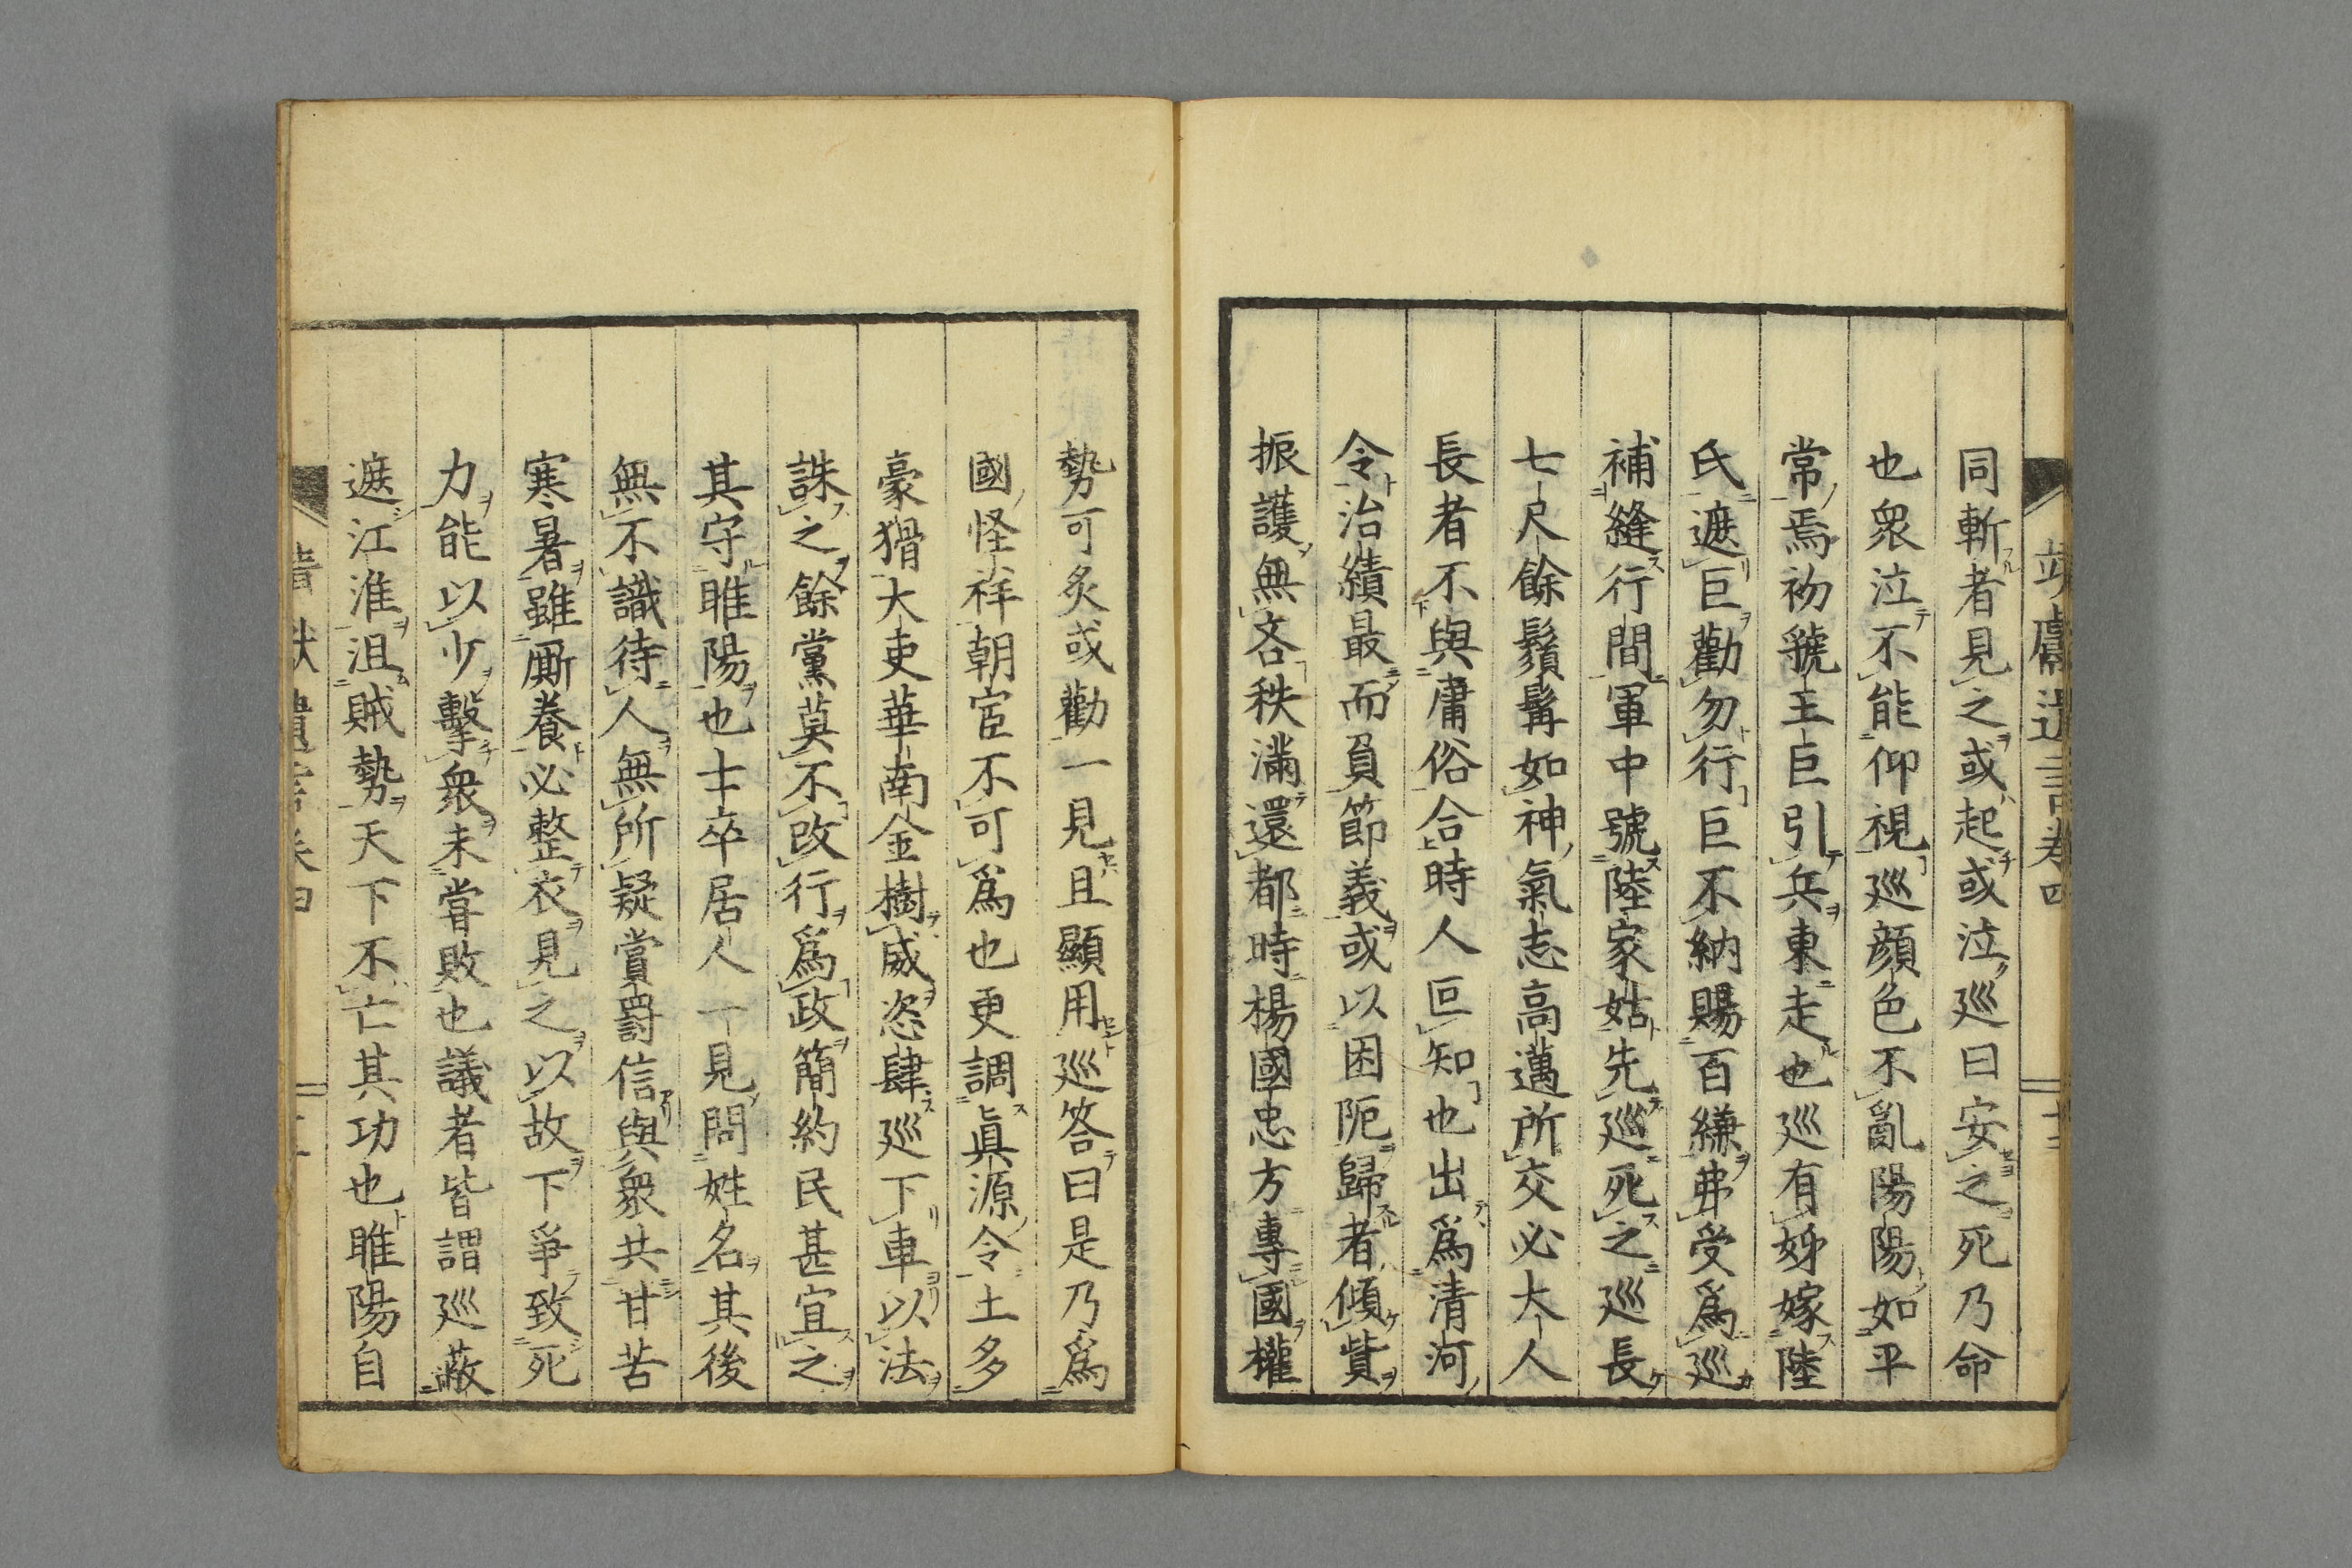 靖獻遺言卷四
同斬者見之或起或泣巡曰安之死乃命
也衆泣不能仰視巡顔色不亂陽陽如平
常焉初虢王巨引兵東走也巡有姊嫁陸
氏遮巨勸勿行巨不納賜百縑弗受爲巡
補縫行間軍中號陸家姑先巡死之巡長
七尺餘鬚髯如神氣志高邁所交必大人
長者不與庸俗合時人叵知也出爲清河
令治績最而負節義或以困阨歸者傾貲
振護無吝秩滿還都時楊國忠方專國權
勢可炙或勸一見且顯用巡答曰是乃爲
國怪祥朝宦不可爲也更調眞源令土多
豪猾大吏華南金樹威恣肆巡下車以法
誅之餘黨莫不改行爲政簡約民甚宜之
其守睢陽也士卒居人一見問姓名其後
無不識待人無所疑賞罰信與衆共甘苦
寒暑雖厮養必整衣見之以故下爭致死
力能以少擊衆未嘗敗也議者皆謂巡蔽
遮江淮沮賊勢天下不亡其功也睢陽自
靖獻遺言卷四